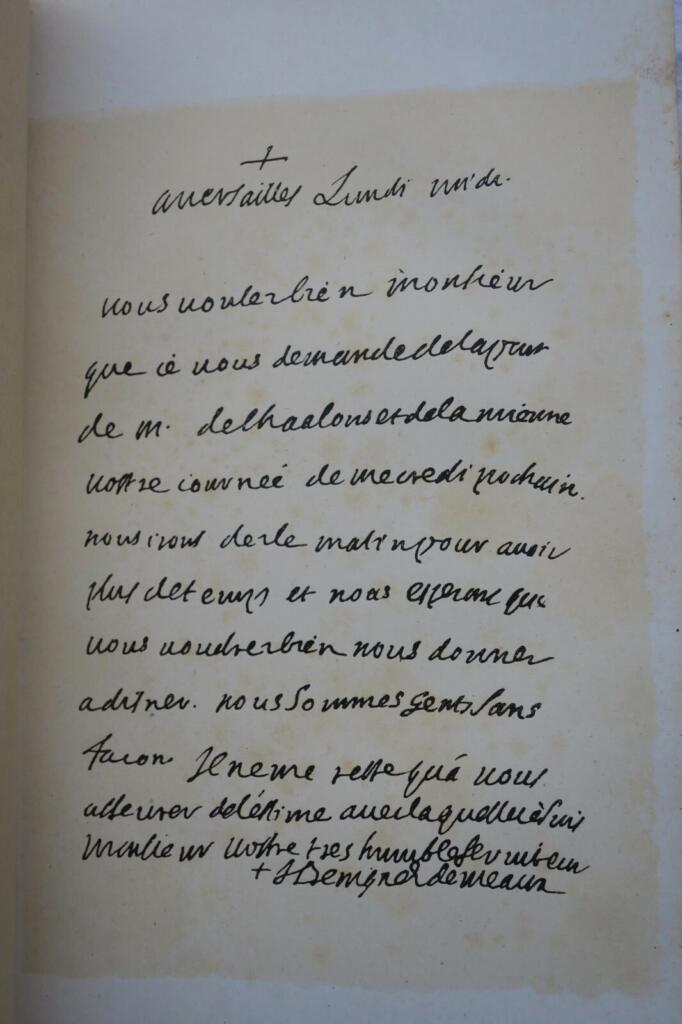 +
a versailles Lundi midi.
vous voulez bien monsieur
que ie vous demande de la part
de M. de Chaalons et de la mienne
vostre iournée de mecredi prochain.
nous irons dez le matin pour avoir
plus de temps et nous esperons que
vous voudrez bien nous donner
a disner. nous sommes gents sans
facon Il ne me reste qu'á vous
asseurer de l'éstime avec laquelle ie suis
Monsieur vostre tres humble serviteur
+ J Benigne e. de meaux